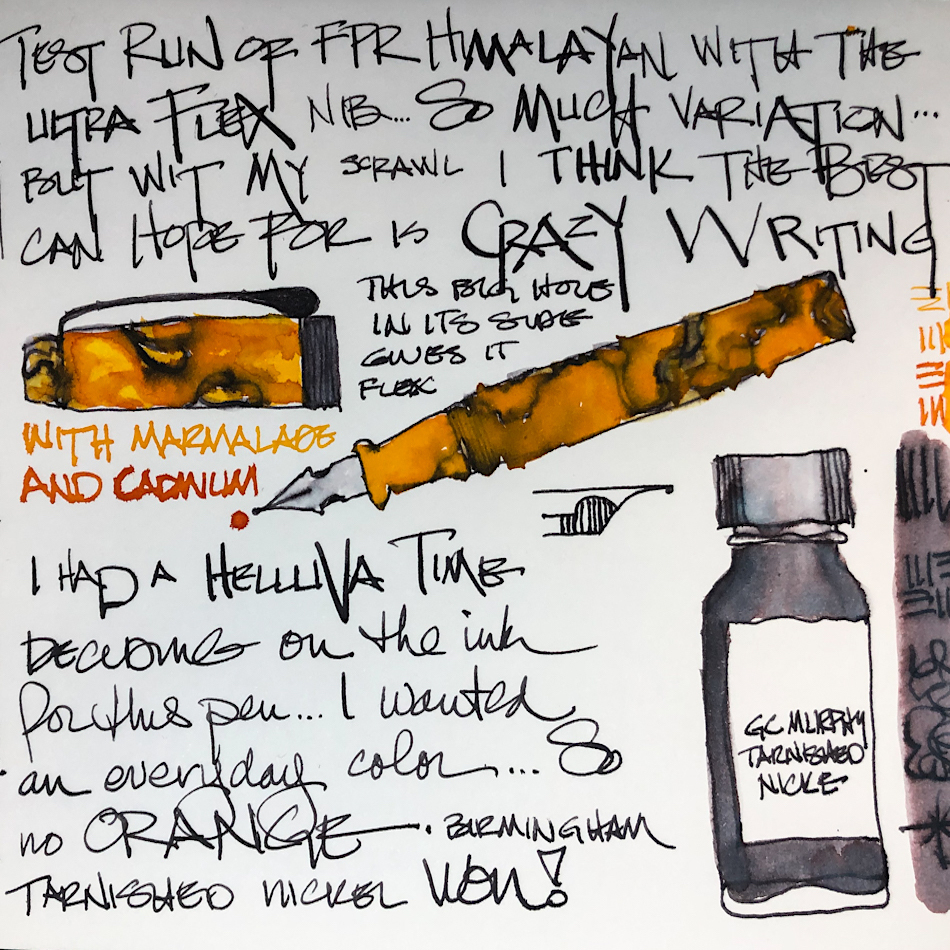 TEST RUN OF FPR HIMALAYAN WITH THE
ULTRA FLEX NIB... SO MUCH VARIATION...
BUT WIT MY SCRAWL I THINK THE BEST
CAN HOPE FOR IS CRAZY WRITING
THIS BIG HOLE
IN ITS SIDE
GIVES IT
FLEX
WITH MARMALADE
AND CADMIUM
I HAD A HELLUVA TIME
DECIDING on the ink
for this pen... I wanted
an everyday color.... So
no ORANGE. BIRMINGHAM
TARNISHED NICKEL WON!
GC MURPHY
TARNISHED
NICKLE